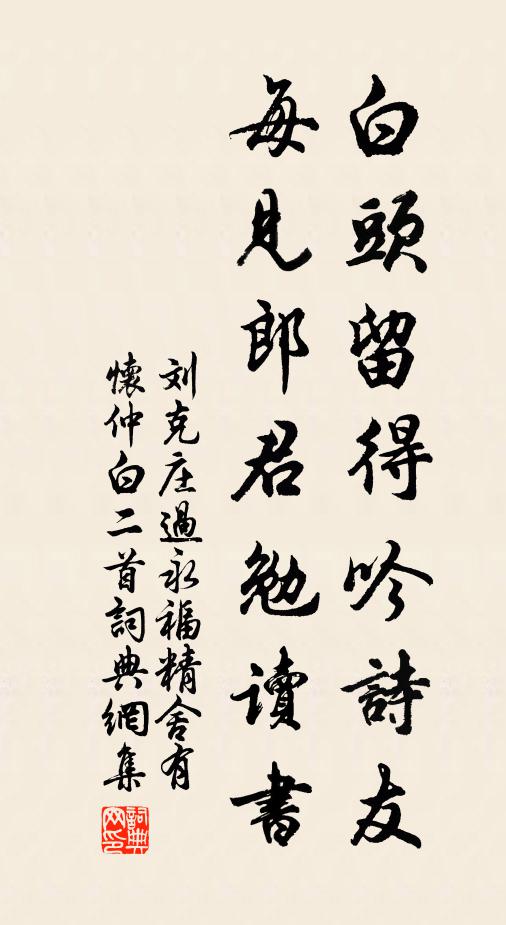 白頭留得吟詩友
每見郎君勉讀書
刘克庄過永福精舍有
懷仲白二首詞典網集
詞典网印